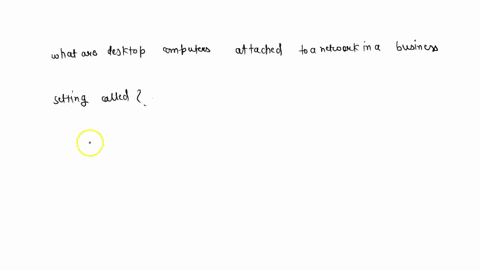 what are desktop computers attached to a network in a business
setting called ?